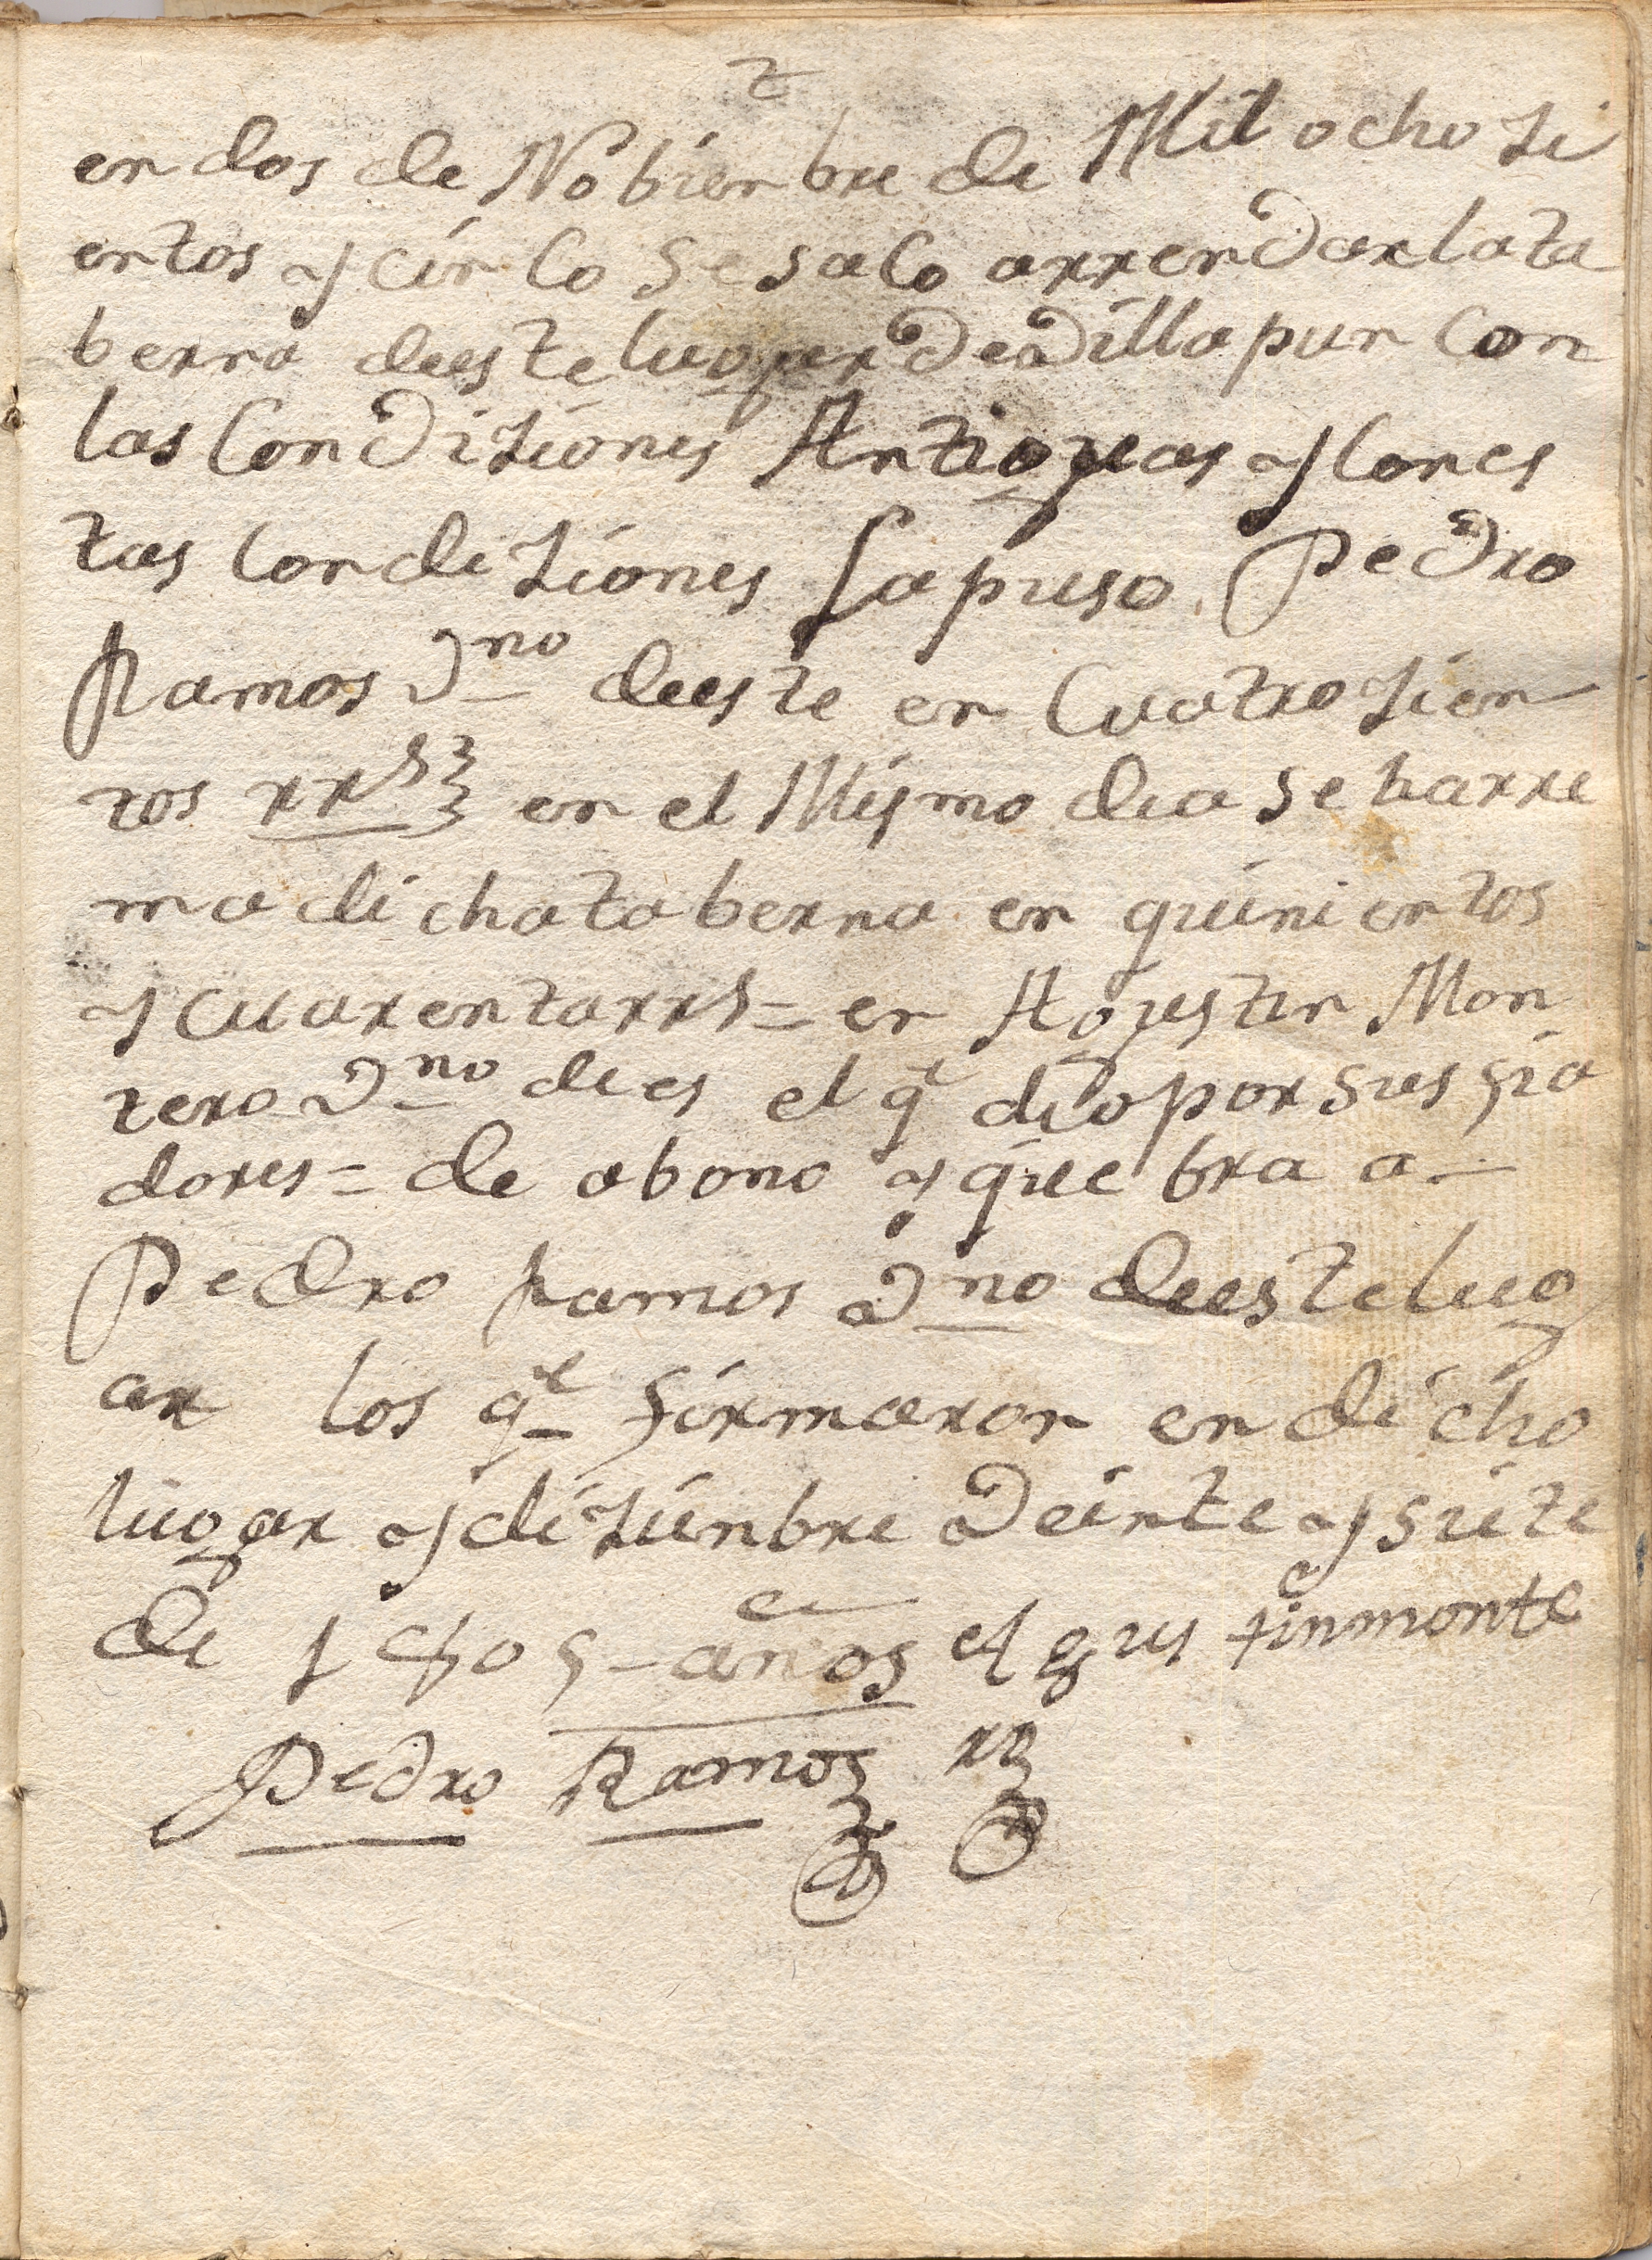 2
en dos de Nobienbre de Mil ochozi
entos y cinco se saco arrendar la ta
berna deeste lugar de Villapun con
las Condiziones Antiguas y cones
tas condiziones la puso Pedro
Ramos Vno deeste en Cuatrozien
tos rrs en el Mismo dia se harre
ma dicha taberna en quinientos
y cuarenta rrs = en Agustin Mon
tero Vno dees el qe dio por sus fia
dores = de abono y quebra a
Pedro Ramos Vno deeste lug
ar los qe firmaron en dicho
lugar y dizienbre Veinte y siete
de años
Pedro Ramos